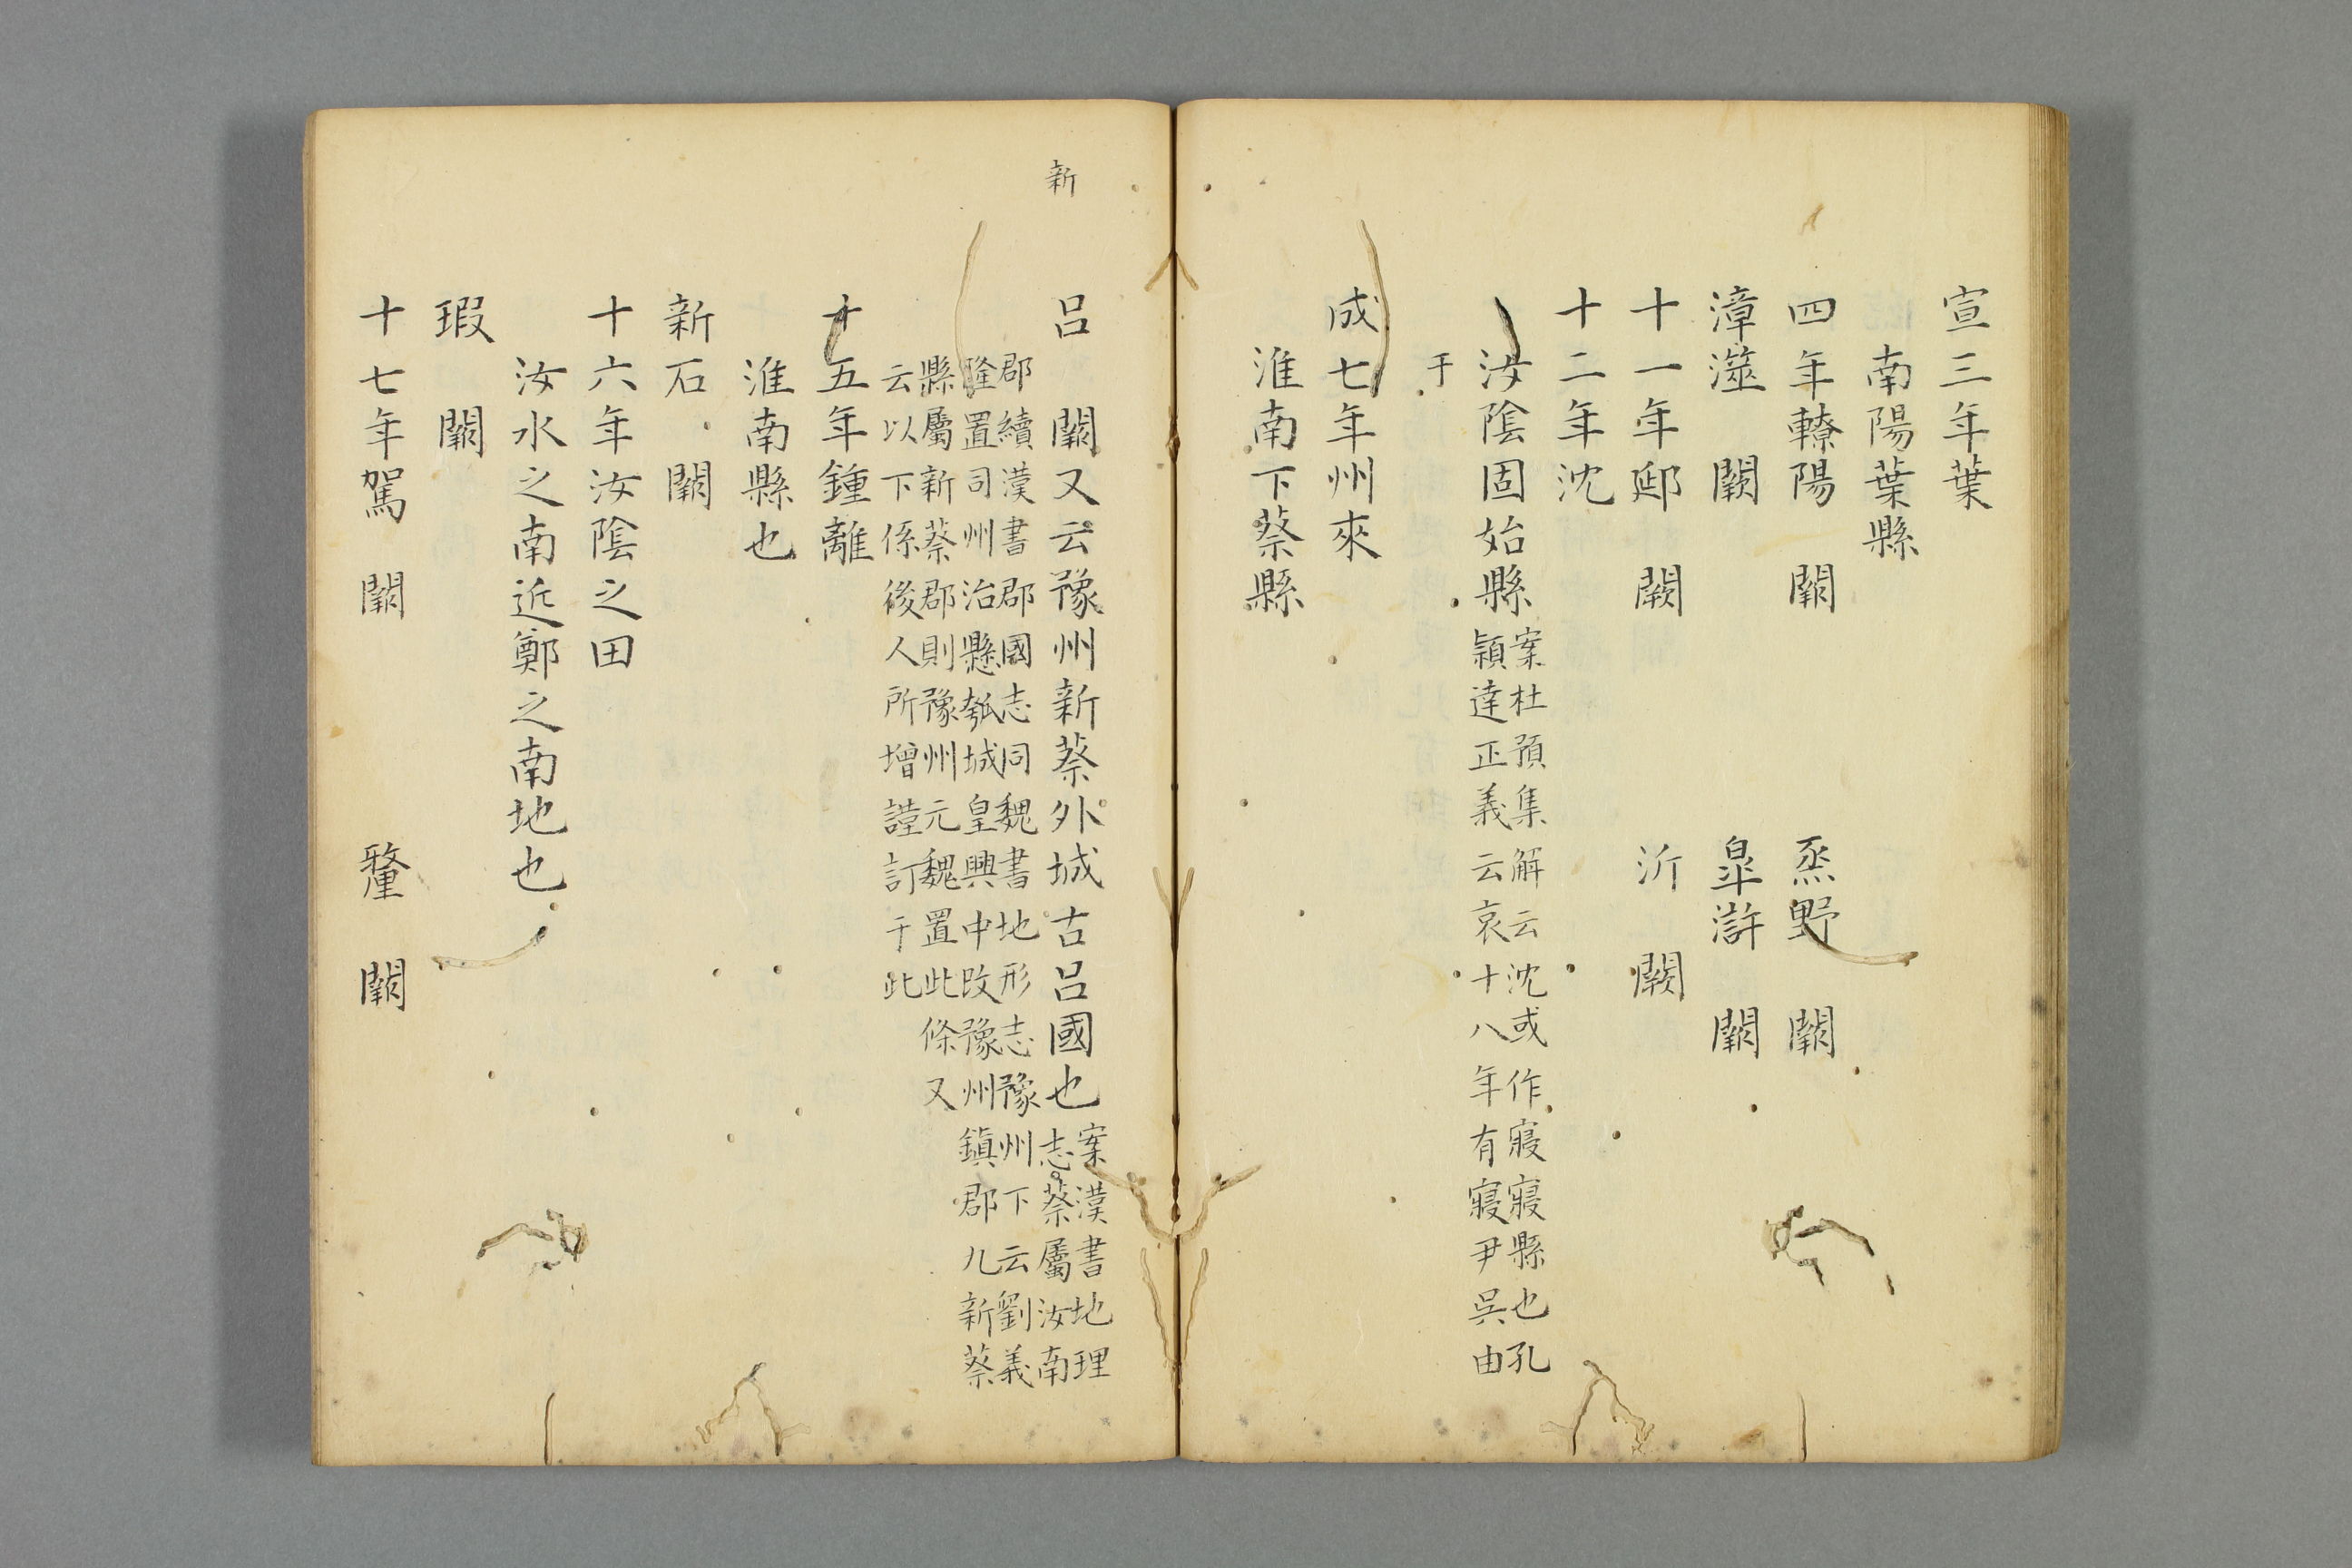 宣三年葉
南陽葉縣
四年轑陽　闕　烝野　闕
漳澨　闕　皐滸　闕
十一年郔　闕　沂　闕
十二年沈
汝陰固始縣案杜預集解云沈或作寢寢縣也孔
穎達正義云哀十八年有寢尹吳由
于
成七年州來
淮南下蔡縣
新
呂　闕又云豫州新蔡外城古呂國也案漢書地理
志蔡屬汝南
郡續漢書郡國志同魏書地形志豫州下云劉義
隆置司州治懸瓠城皇興中改豫州鎮郡九新蔡
縣屬新蔡郡則豫州元魏置此條又
云以下係後人所增謹訂于此
十五年鍾離
淮南縣也
新石　闕
十六年汝陰之田
汝水之南近鄭之南地也
瑕　闕
十七年駕　闕　釐　闕